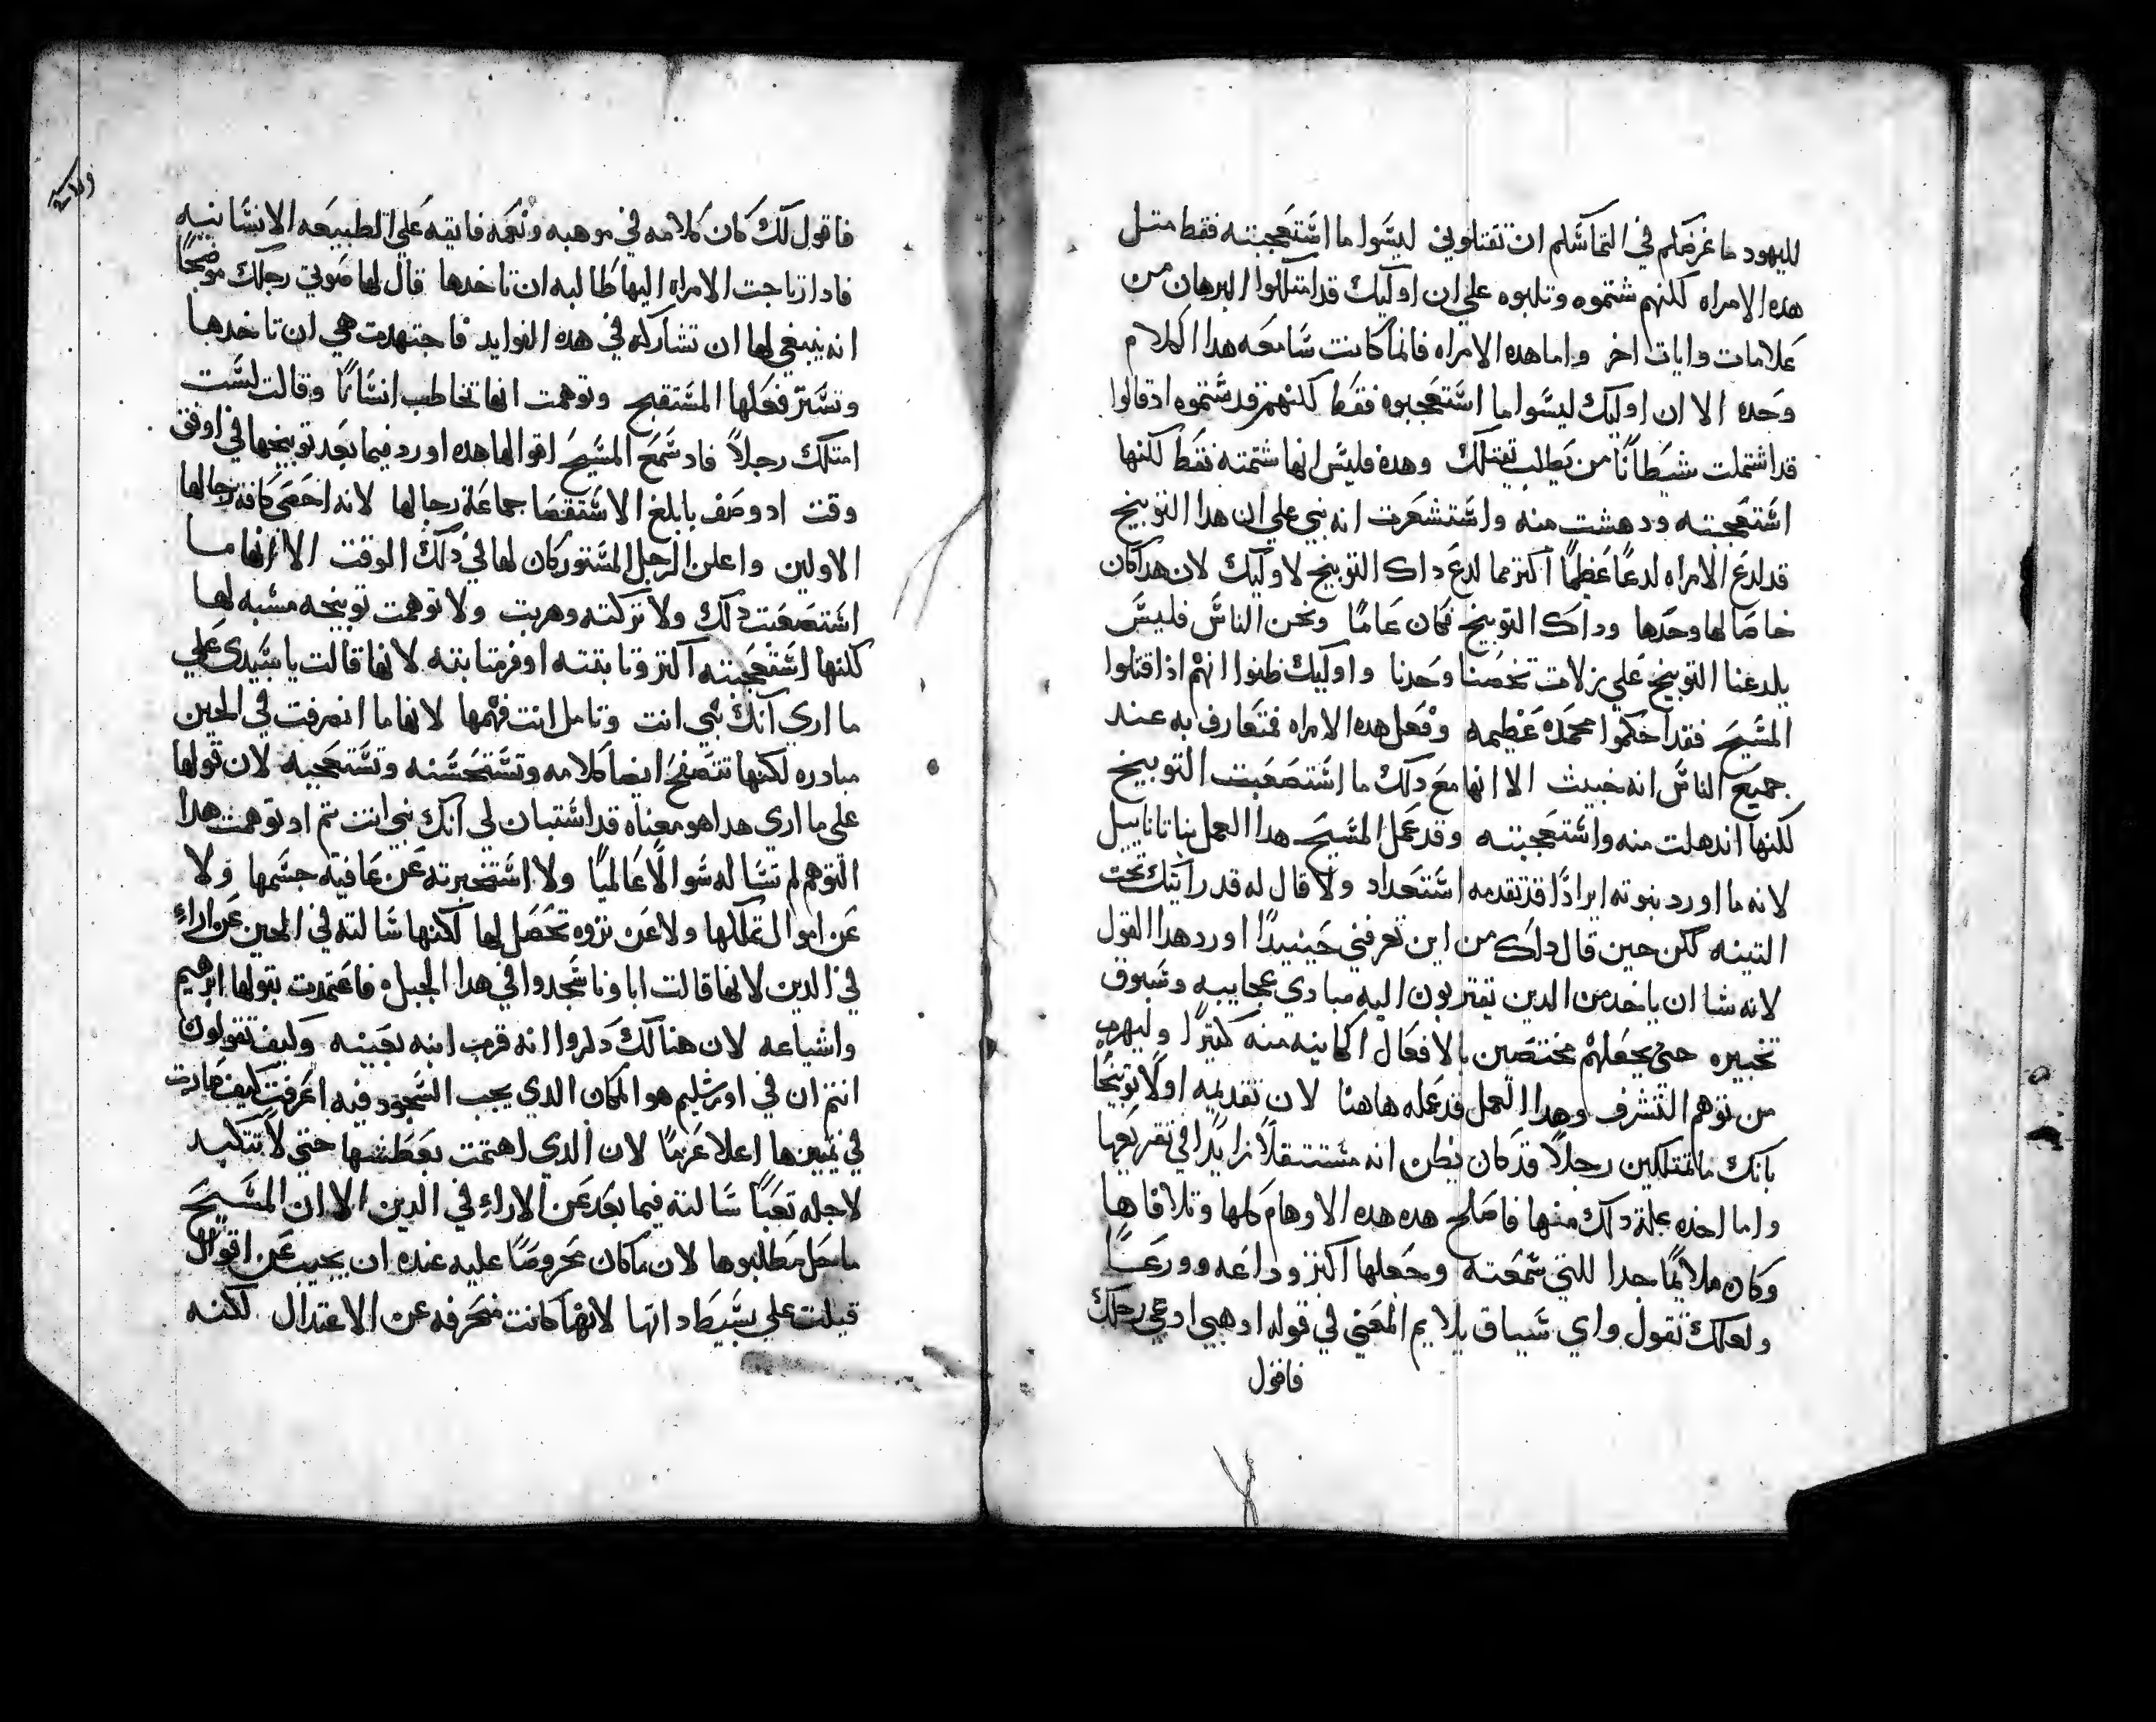 لليهود ما غرضكم في التماسكم ان تقتلوني ليسوا ما استعجبته فقط متل
هذه الامراه لكنهم شتموه وتلبوه علي ان اوليك قد امتلكوا البرهان من
علامات وايات اخر واما هده الامراه فانما كانت سامعه هدا الكلام
وحده الا ان اوليك ليسوا ما استعجبوه فقط لكنهم قد شتموه اد قالوا
قد اشتملت شيطانًا من يطلب يقتلك وهده فليس انها شتمته فقط لكنها
استعجبته ودهشت منه واستشعرت انه نبي علي ان هدا التوبيخ
قد لدع الامراه لدعًا عظيمًا اكتر مما لدع داك التوبيخ لاوليك لان هدا كان
خاصا لها وحدها وداك التوبيخ فكان عامًا ونحن الناس فليس
يلدعنا التوبيخ علي زلات تخصنا وحدنا واوليك ظنوا انهم اذا قتلوا
المسيح فقد احكموا محمدة عظيمه وفعل هده الامراه فمتعارف به عند
جميع الناس انه خبيث الا انها مع دلك ما استصعبت التوبيخ
لكنها اندهلت منه واستعجبته وقد عمل المسيح هدا العمل بناتانابيل
لانه ما اورد نبوته ايرادًا قد تقدمه استعداد ولا قال له قد رايتك تحت
التينه لكن حين قال داك من اين تعرفني حينيدًا اورد هدا القول
لانه شا ان ياخد من الدين يقتربون اليه مبادي عجايبه وسبوق
تخبيره حتي يجعلهم مختصين بالافعال الكاينه منه كتيرًا وليهرب
من توهم التشرف وهدا العمل قد عمله هاهنا لان تقديمه اولًا توبيخًا
بانك ما تمتلكين رجلًا قد كان يظن انه مستتقلًا زايدًا في تقريعها
واما اخده علة دلك منها فاصلح هده هده الاوهام كلها وتلافاها
وكان ملايمًا جدا للتي سمعته وجعلها اكتر وداعه وورعًا
ولعلك تقول واي سياق يلايم المعني في قوله ادهبي ادعي رجلك
فاقول
فاقول لك كان كلامه في موهبه ونعمه فايقه علي الطبيعه الانسانيه
فاد ازتاجت الامراه اليها طالبه ان تاخدها قال لها صوتي رجلك موضحًا
انه ينبغي لها ان تشاركه في هده الفوايد فاجتهدت هي ان تاخدها
وتستر فعلها المستقبح وتوهمت انها تخاطب انسانًا وقالت لست
امتلك رجلًا فاد سمع المسيح اقوالها هده اورد فيما بعد توبيخها في اوفق
وقت اد وصف بابلغ الاستقصا جماعة رجالها لانه احصي كافة رجالها
الاولين واعلن الرجل المستور كان لها في دلك الوقت الا انها ما
استصعبت دلك ولا تركته وهربت ولا توهمت توبيخه مسبه لها
لكنها استعجبته اكتر وتابتته اوفر متابته لانها قالت يا سيدي علي
ما اري انك نبي انت وتامل انت فهمها لانها ما انصرفت في الحين
مبادره لكنها تتصفح ايضا كلامه وتستحسنه وتستعجبه لان قولها
علي ما اري هدا هو معناه قد استبان لي انك نبي انت تم اد توهمت هدا
التوهم لم تساله سوالًا عالميًا ولا استخبرته عن عافية جسمها ولا
عن اموال تملكها ولا عن تروه تحصل لها لكنها سالته في الحين عن اراءِ
في الدين لانها قالت اباونا سجدوا في هدا الجبل فاعتمدت بقولها ابرهيم
واشياعه لان هنالك دكروا انه قرب ابنه بعينه وكيف تقولون
انتم ان في اورشليم هو المكان الدي يجب السجود فيه اعرفت كيف صارت
في تمييزها اعلا عزمًا لان الدي اهتمت بعطشها حتي لا تتكبد
لاجله تعبًا سالته فيما بعد عن الاراءِ في الدين الا ان المسيح
ما حل مطلبوها لان ما كان محروصًا عليه عنده ان يجيب عن اقوال
قيلت علي بسيط داتها لانها كانت منحرفه عن الاعتدال لكنه